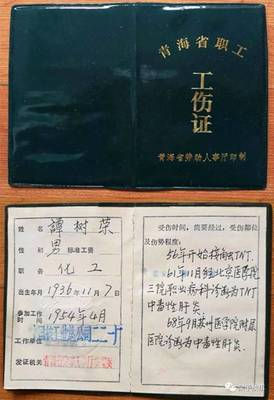 青海省职工
工伤证
青海省劳动人事厅印制
姓名 譚树荣
性别 男 标准工资
职务 化工
出生年月 1936年11月7日
参加工作时间 1954年4月
工作单位
发证机关
受伤时间、简要经过、受伤部位
及伤势程度:
56年开始接触TNT.
61年11月经北京医学院
三院职业病科诊断为TNT
中毒性肝炎.
68年9月苏州医学院附属
医院诊断为中毒性肝炎.